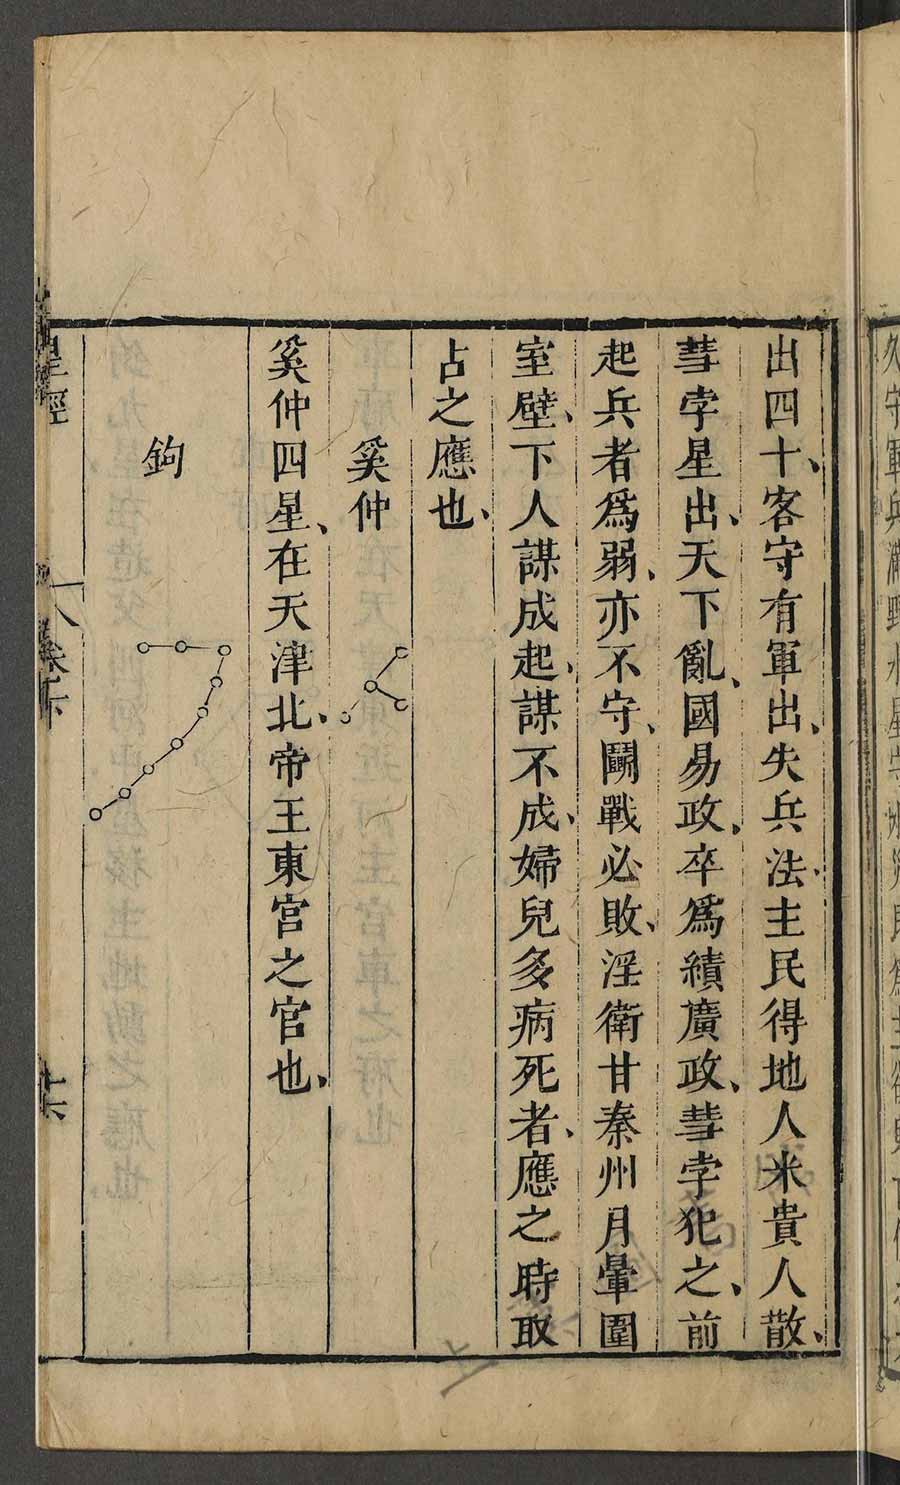 出四十、客守有軍出、失兵法、主民得地人米貴人散、
彗孛星出、天下亂、國易政、卒爲績廣政、彗孛犯之、前
起兵者爲弱、亦不守、鬬戰必敗、淫衛甘秦州月暈圍
室壁、下人謀成起、謀不成、婦兒多病死者、應之時取
占之應也、
奚仲
奚仲四星、在天津北、帝王東宮之官也、
鉤
星經
卷下